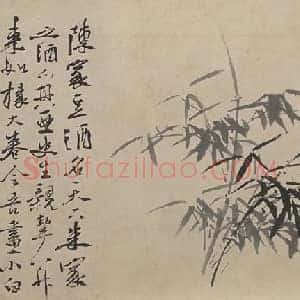 陳家豆酒名天下朱家
之酒亦其亞史甥親挈八升
來如椽大卷令吾畫小白
Shufaziliao.com